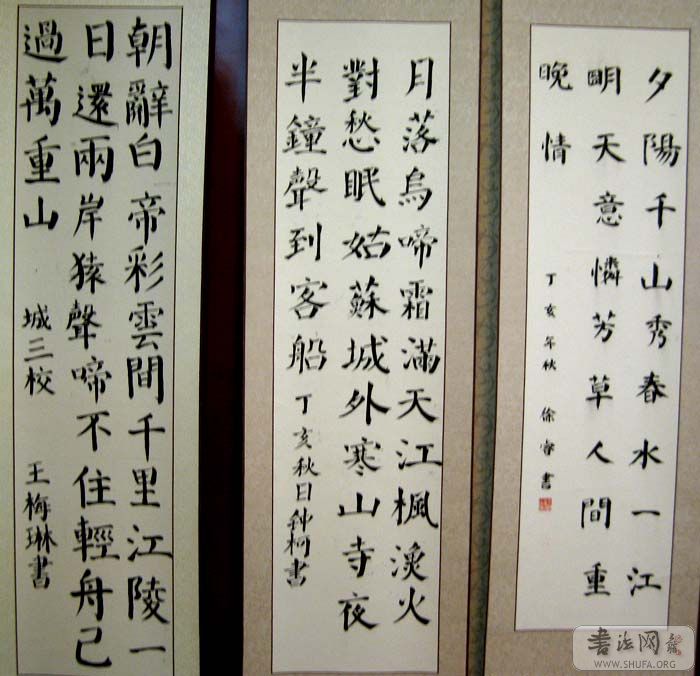 夕陽千山秀春水一江
明天意憐芳草人間重
晚情 丁亥年秋 徐睿書
月落烏啼霜滿天江楓漁火
對愁眠姑蘇城外寒山寺夜
半鐘聲到客船 丁亥秋日钟柯書
朝辭白帝彩雲間千里江陵一
日還兩岸猿聲啼不住輕舟已
過萬重山 城三校 王梅琳書
书法网
WWW.SHUFA.ORG